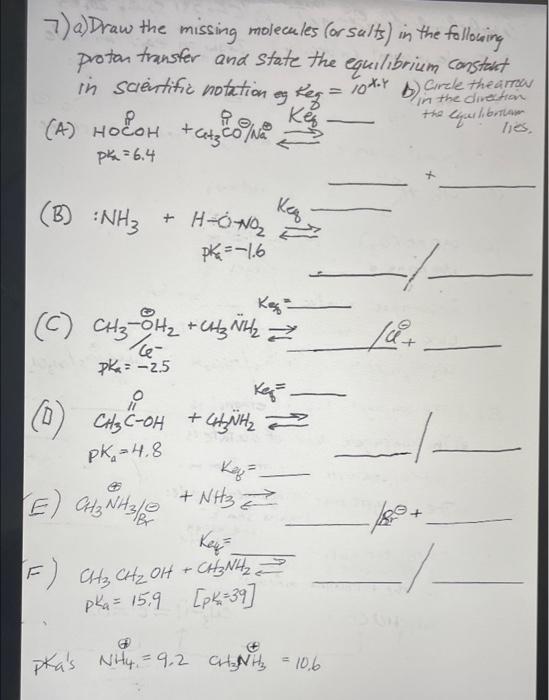 7) a) Draw the missing molecules (or salts) in the following
proton transfer and state the equilibrium constant
in scientific notation eg Keq = 10^x.y b) Circle the arrow
in the direction
the equilibrium
lies.
O ⊖ O ⊕ Keq ___
(A) HOCOH + CH3CO/Na ⇌
pKa = 6.4
___ + ___
(B) :NH3 + H-O-NO2 Keq ___ ⇌
pKa = -1.6
___ / ___
Keq = ___
(C) CH3-⊕OH2 + CH3N̈H2 ⇌ ___ /Cl⊖ + ___
/Cl-
pKa = -2.5
O Keq = ___
(D) CH3C-OH + CH3N̈H2 ⇌
pKa = 4.8 ___ / ___
Keq = ___
E) CH3⊕NH3/⊖Br + NH3 ⇌ ___ /Br⊖ + ___
Keq = ___
F) CH3CH2OH + CH3NH2 ⇌ ___ / ___
pKa = 15.9 [pKa=39]
pKa's ⊕NH4 = 9.2 CH3⊕NH3 = 10.6